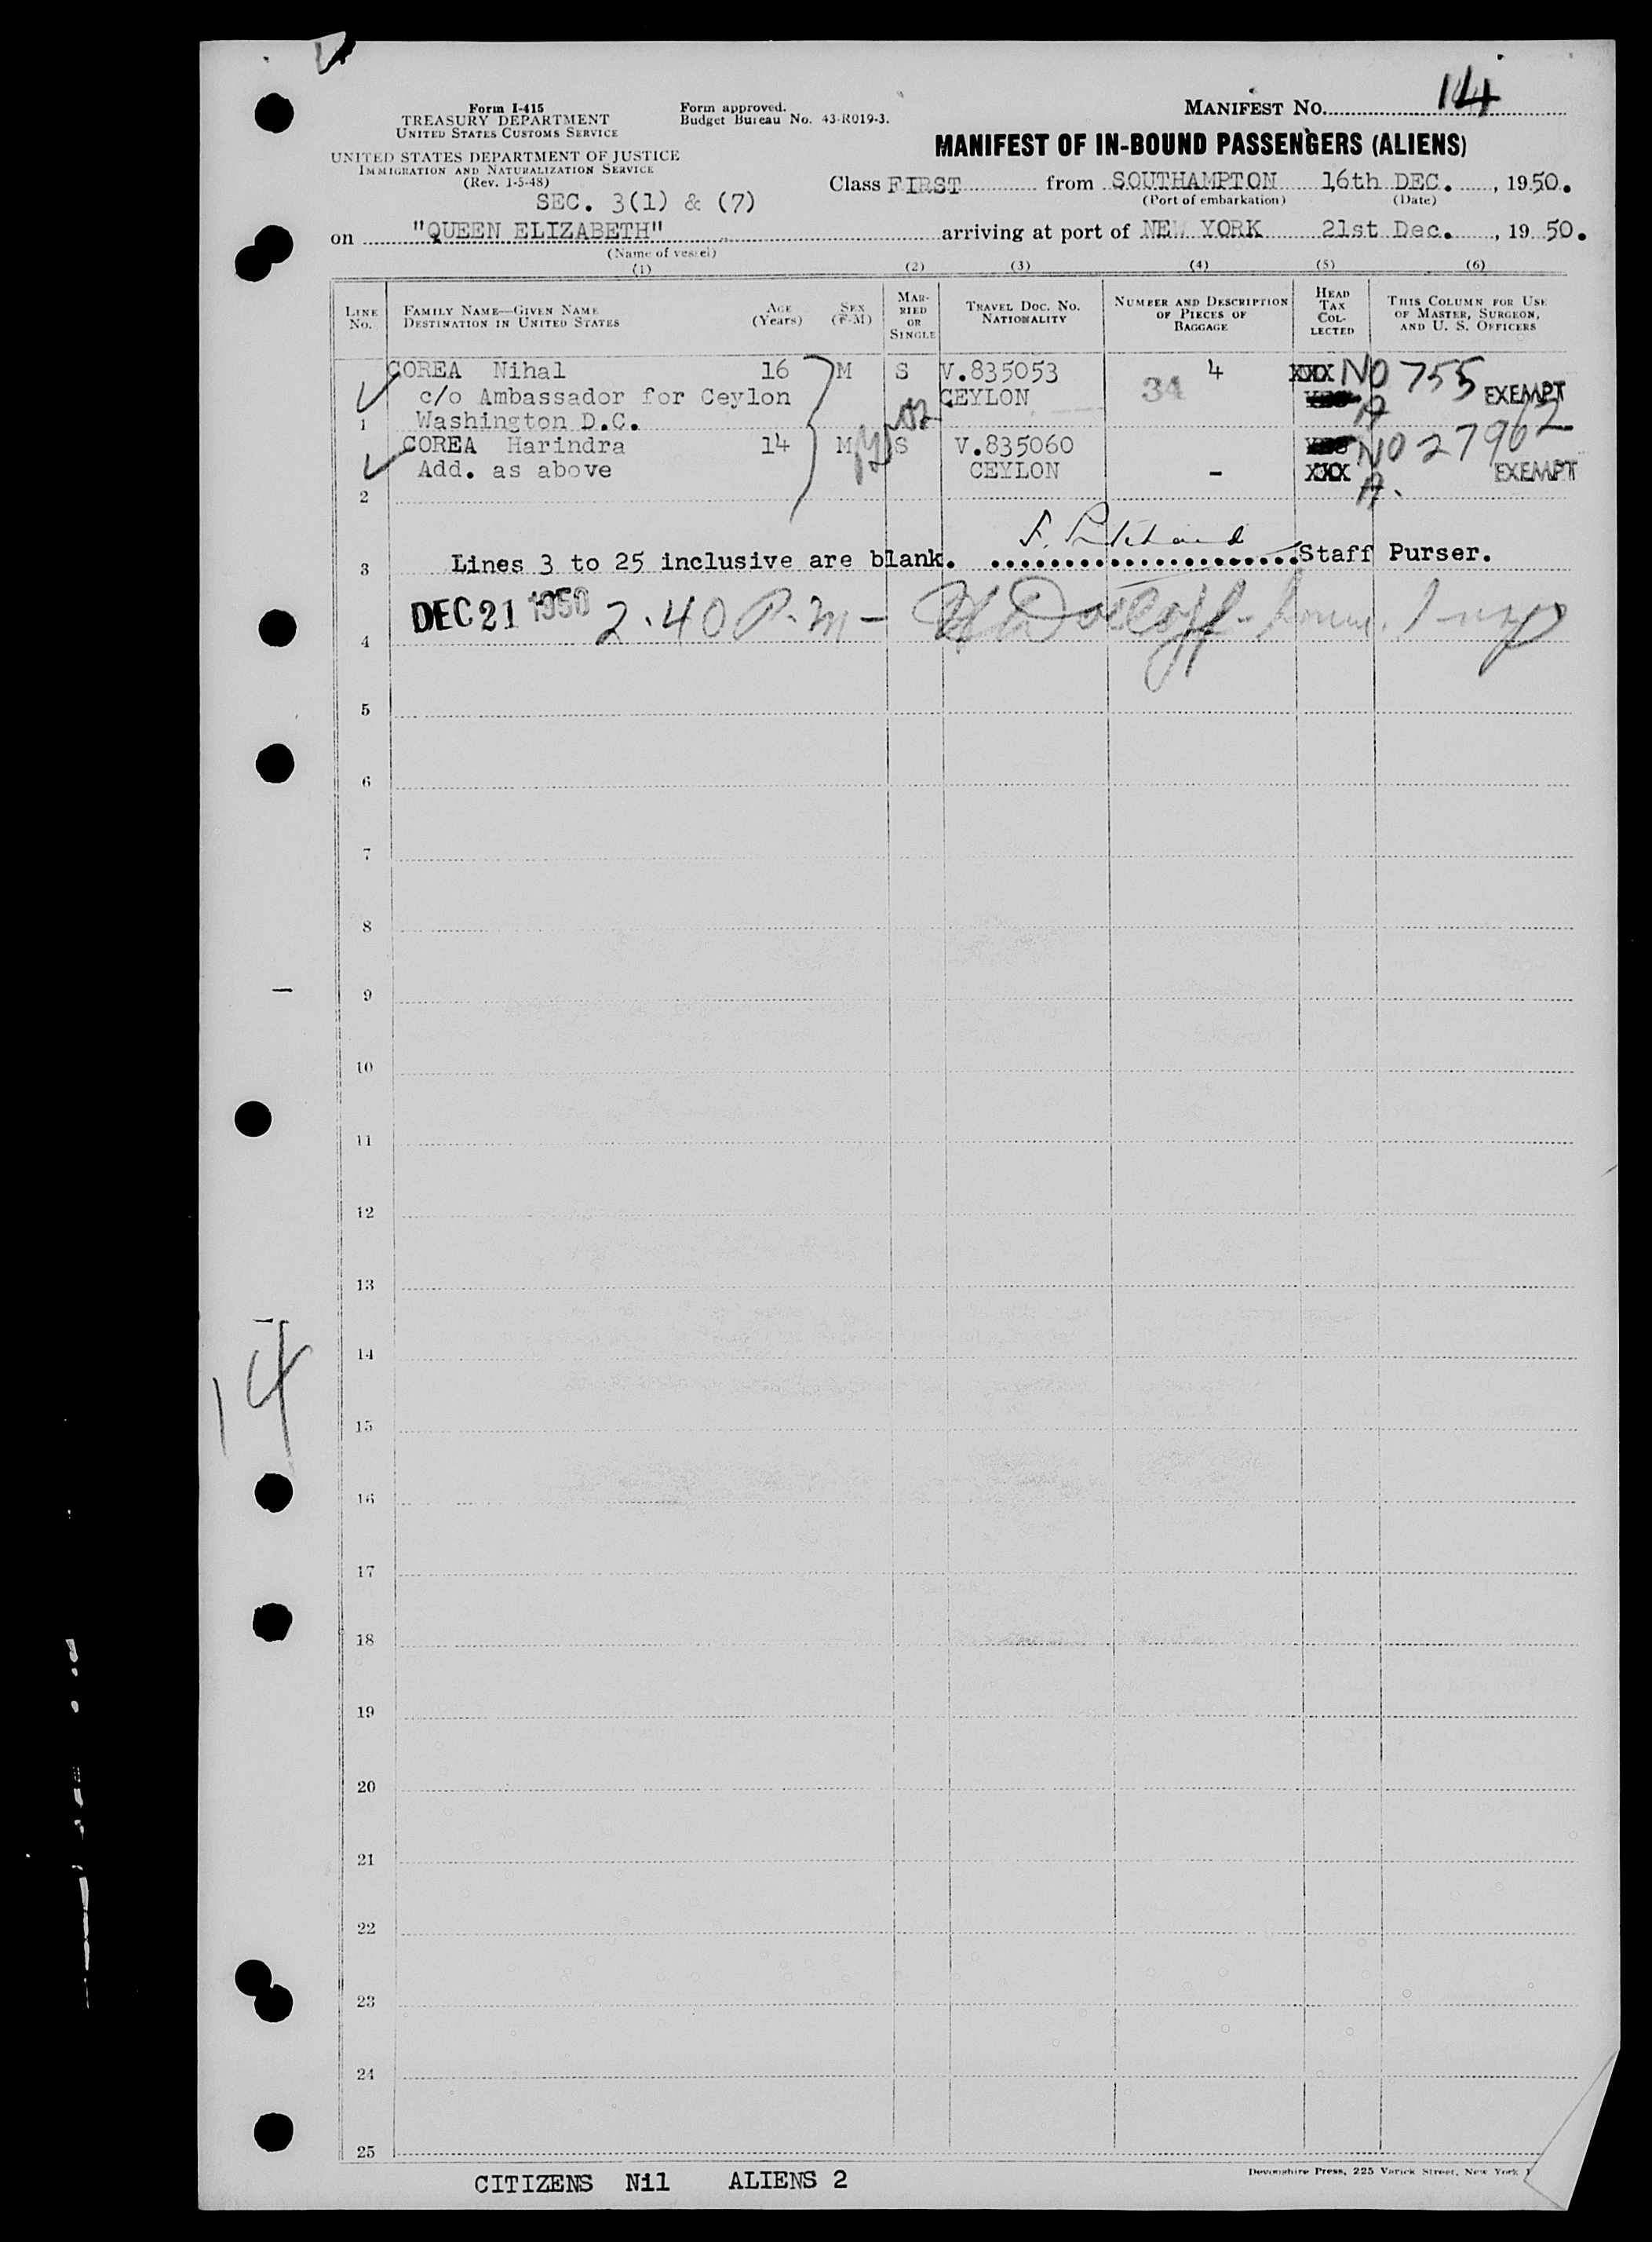 14
Form I-415
TREASURY DEPARTMENT
UNITED STATES CUSTOMS SERVICE
UNITED STATES DEPARTMENT OF JUSTICE
IMMIGRATION AND NATURALIZATION SERVICE
(Rev. 1-5-48)
Form approved.
Budget Bureau No. 43-R019-3.
MANIFEST NO.
MANIFEST OF IN-BOUND PASSENGERS (ALIENS)
Class FIRST from SOUTHAMPTON 16th DEC. , 1950.
(Port of embarkation) (Date)
SEC. 3(1) & (7)
on "QUEEN ELIZABETH" arriving at port of NEW YORK 21st Dec. , 19 50.
(Name of vessel)
(1) (2) (3) (4) (5) (6)
LINE NO.
FAMILY NAME—GIVEN NAME
DESTINATION IN UNITED STATES
AGE (Years)
SEX (F-M)
MARRIED OR SINGLE
TRAVEL DOC. NO.
NATIONALITY
NUMBER AND DESCRIPTION OF PIECES OF BAGGAGE
HEAD TAX COLLECTED
THIS COLUMN FOR USE OF MASTER, SURGEON, AND U. S. OFFICERS
COREA Nihal 16 M S V.835053 4 XXX NO 755
c/o Ambassador for Ceylon CEYLON 34 EXEMPT
1 Washington D.C. A
COREA Harindra 14 M S V.835060 NO 27962
Add. as above CEYLON - XXX EXEMPT
2 A.
3 Lines 3 to 25 inclusive are blank. Staff Purser.
DEC 21 1950 2.40 P.M-
4
5
6
7
8
9
10
11
12
13
14
14
15
16
17
18
19
20
21
22
23
24
25
Devonshire Press, 225 Varick Street, New York
CITIZENS Nil ALIENS 2